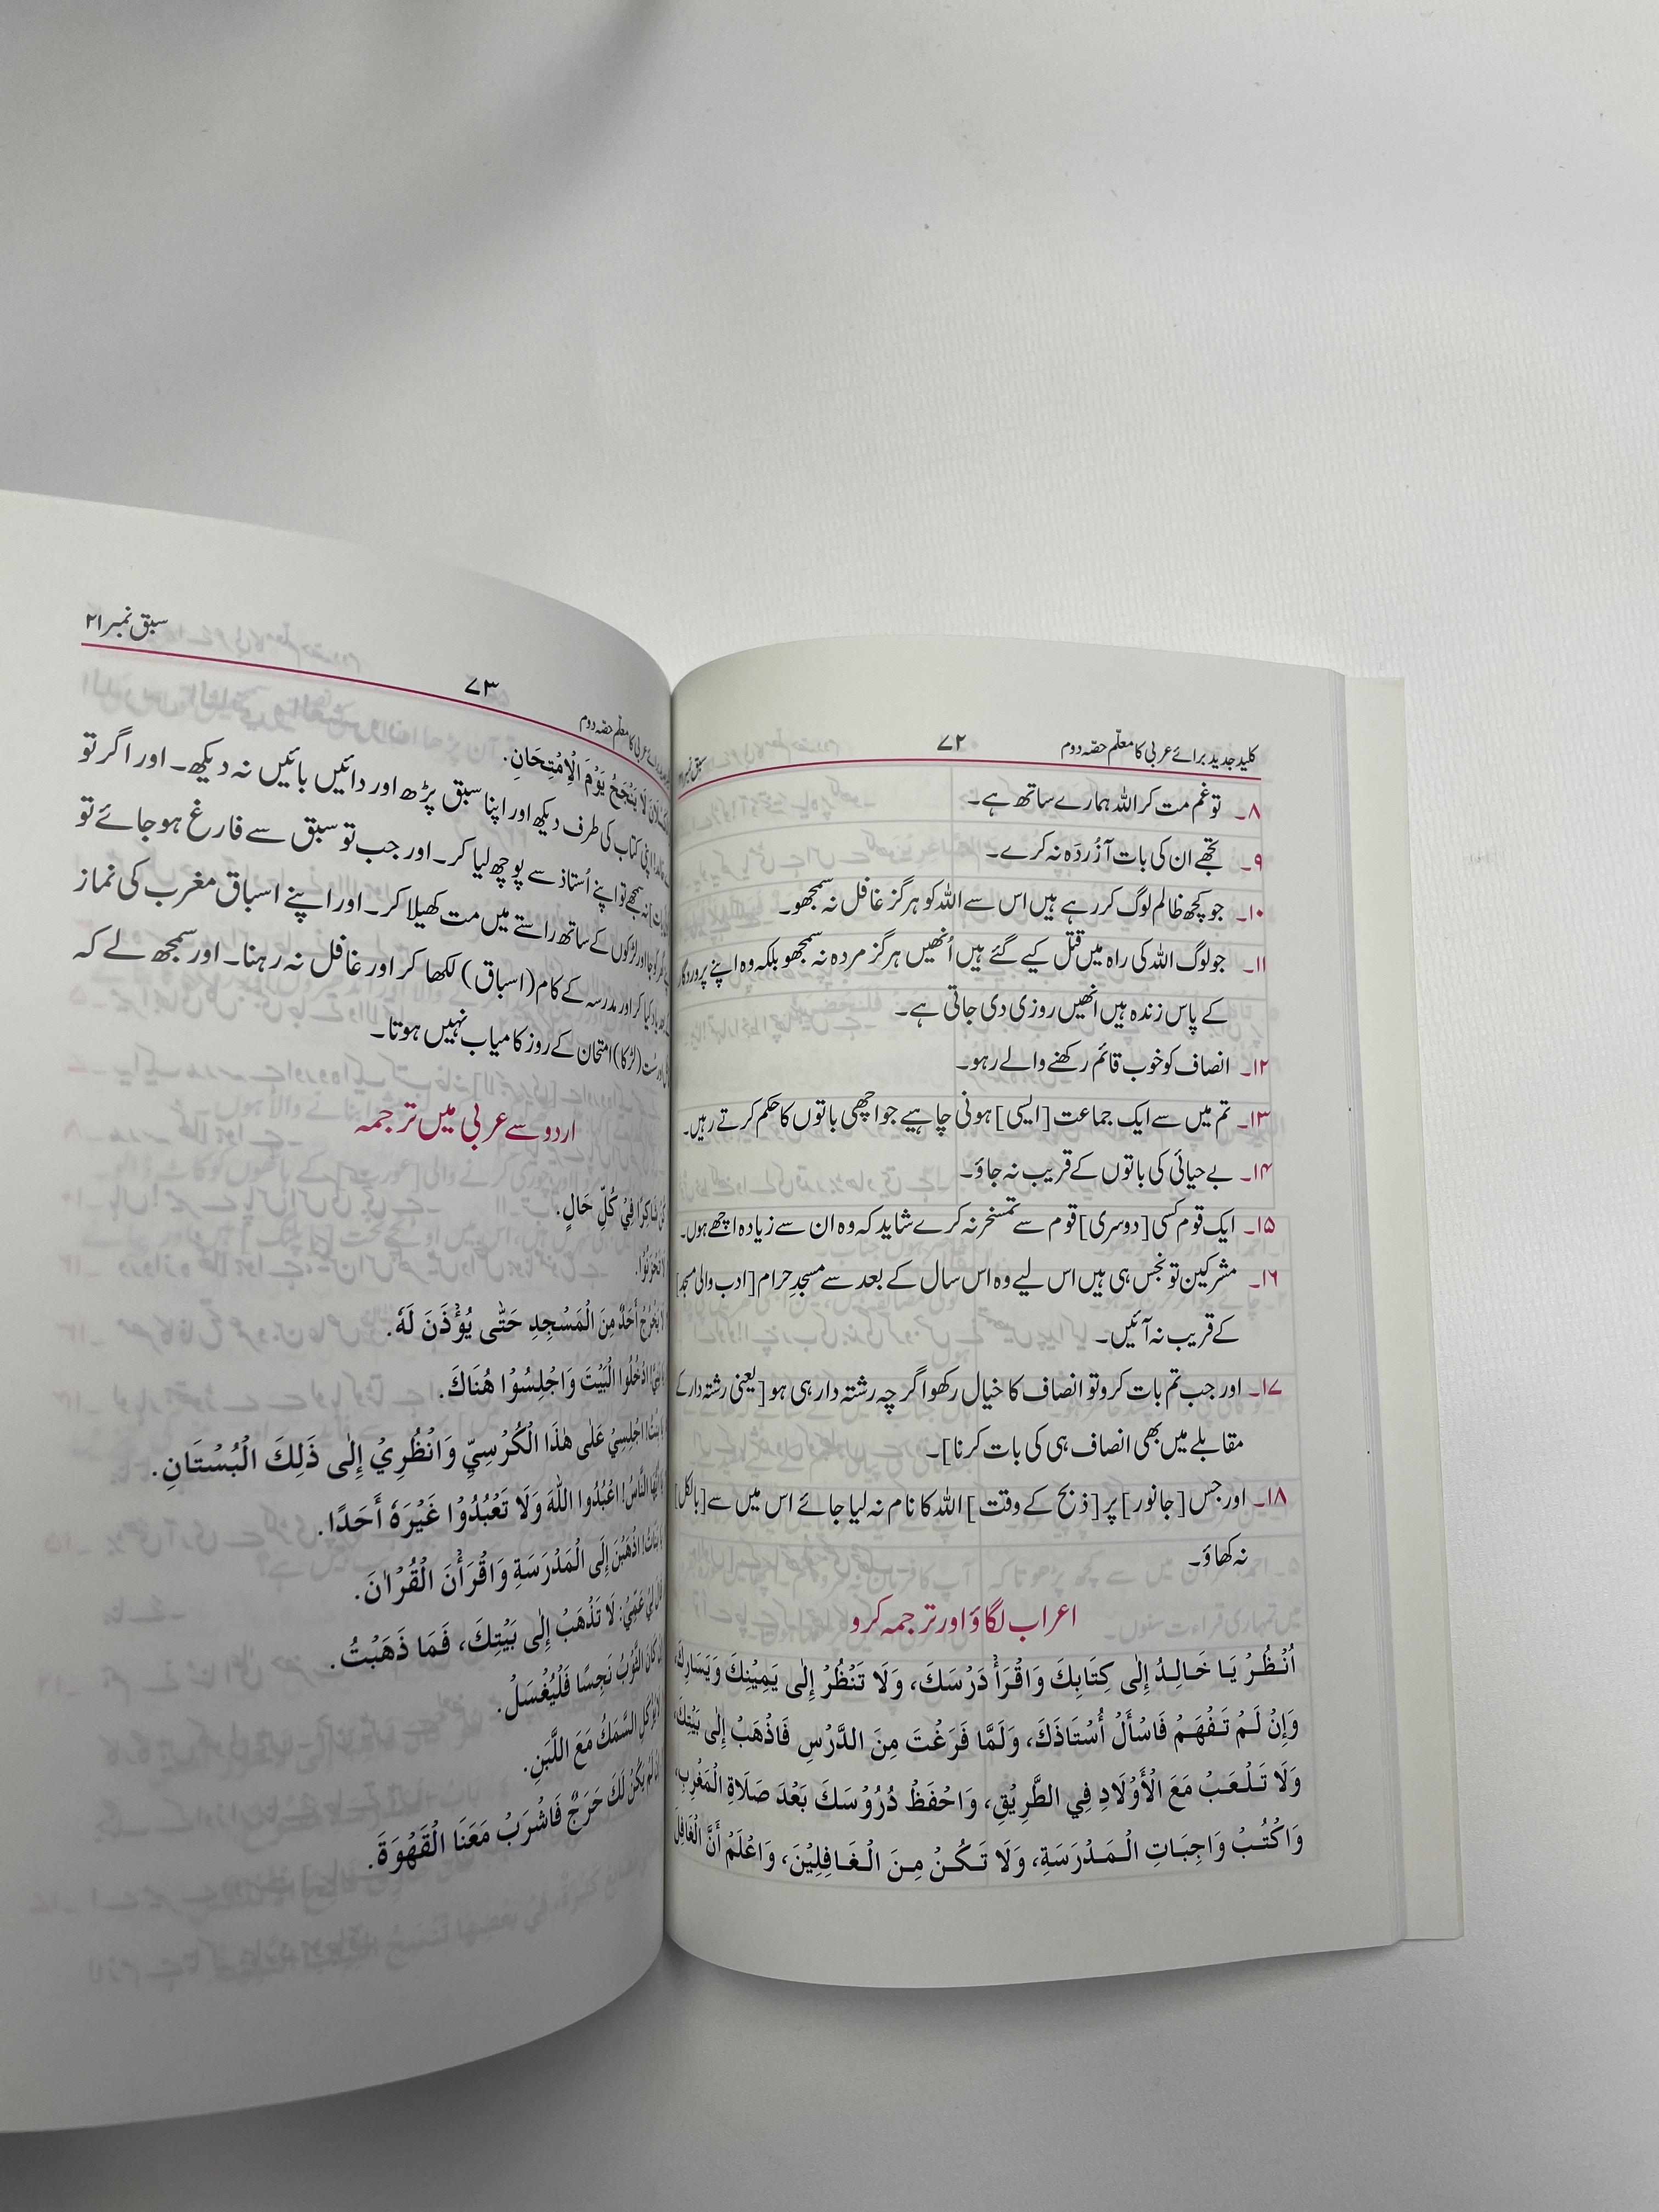 کلید جدید برائے عربی کا معلّم حصّہ دوم ۷۲ سبق نمبر
۸۔ تو غم مت کر اللہ ہمارے ساتھ ہے۔
۹۔ تجھے ان کی بات آزُردَہ نہ کرے۔
۱۰۔ جو کچھ ظالم لوگ کر رہے ہیں اس سے اللہ کو ہرگز غافل نہ سمجھو۔
۱۱۔ جو لوگ اللہ کی راہ میں قتل کیے گئے ہیں اُنھیں ہرگز مردہ نہ سمجھو بلکہ وہ اپنے پروردگار
کے پاس زندہ ہیں انھیں روزی دی جاتی ہے۔
۱۲۔ انصاف کو خوب قائم رکھنے والے رہو۔
۱۳۔ تم میں سے ایک جماعت [ایسی] ہونی چاہیے جو اچھی باتوں کا حکم کرتے رہیں۔
۱۴۔ بے حیائی کی باتوں کے قریب نہ جاؤ۔
۱۵۔ ایک قوم کسی [دوسری] قوم سے تمسخر نہ کرے شاید کہ وہ ان سے زیادہ اچھے ہوں۔
۱۶۔ مشرکین تو نجس ہی ہیں اس لیے وہ اس سال کے بعد سے مسجدِ حرام [ادب والی مسجد]
کے قریب نہ آئیں۔
۱۷۔ اور جب تم بات کرو تو انصاف کا خیال رکھو اگرچہ رشتہ دار ہی ہو [یعنی رشتہ دار کے
مقابلے میں بھی انصاف ہی کی بات کرنا]۔
۱۸۔ اور جس [جانور] پر [ذبح کے وقت] اللہ کا نام نہ لیا جائے اس میں سے [بالکل]
نہ کھاؤ۔
اعراب لگاؤ اور ترجمہ کرو
اُنْظُرْ يَا خَالِدُ إِلٰى كِتَابِكَ وَاقْرَأْ دَرْسَكَ، وَلَا تَنْظُرْ إِلٰى يَمِيْنِكَ وَيَسَارِكَ،
وَإِنْ لَمْ تَفْهَمْ فَاسْأَلْ أُسْتَاذَكَ، وَلَمَّا فَرَغْتَ مِنَ الدَّرْسِ فَاذْهَبْ إِلٰى بَيْتِكَ،
وَلَا تَلْعَبْ مَعَ الْأَوْلَادِ فِي الطَّرِيْقِ، وَاحْفَظْ دُرُوْسَكَ بَعْدَ صَلَاةِ الْمَغْرِبِ،
وَاكْتُبْ وَاجِبَاتِ الْمَدْرَسَةِ، وَلَا تَكُنْ مِنَ الْغَافِلِيْنَ، وَاعْلَمْ أَنَّ الْغَافِلَ
برائے عربی کا معلّم حصّہ دوم ۷۳ سبق نمبر ۲۱
لَا يَنْجَحُ يَوْمَ الْاِمْتِحَانِ.
اپنی کتاب کی طرف دیکھ اور اپنا سبق پڑھ اور دائیں بائیں نہ دیکھ۔ اور اگر تو
نہ سمجھے تو اپنے اُستاذ سے پوچھ لیا کر۔ اور جب تو سبق سے فارغ ہوجائے تو
اور لڑکوں کے ساتھ راستے میں مت کھیلا کر۔ اور اپنے اسباق مغرب کی نماز
یاد کیا کر اور مدرسہ کے کام (اسباق) لکھا کر اور غافل نہ رہنا۔ اور سمجھ لے کہ
سُست (لڑکا) امتحان کے روز کامیاب نہیں ہوتا۔
اردو سے عربی میں ترجمہ
شَاكِرًا فِيْ كُلِّ حَالٍ.
لَا تَحْزَنُوْا.
لَا يَخْرُجْ أَحَدٌ مِنَ الْمَسْجِدِ حَتّٰى يُؤْذَنَ لَهٗ.
ادْخُلُوا الْبَيْتَ وَاجْلِسُوْا هُنَاكَ.
اجْلِسِيْ عَلٰى هٰذَا الْكُرْسِيِّ وَانْظُرِيْ إِلٰى ذٰلِكَ الْبُسْتَانِ.
يَا أَيُّهَا النَّاسُ! اعْبُدُوا اللّٰهَ وَلَا تَعْبُدُوْا غَيْرَهٗ أَحَدًا.
يَا بَنَاتُ! اذْهَبْنَ إِلَى الْمَدْرَسَةِ وَاقْرَأْنَ الْقُرْاٰنَ.
عَمِّيْ: لَا تَذْهَبْ إِلٰى بَيْتِكَ، فَمَا ذَهَبْتُ.
كَانَ الثَّوْبُ نَجِسًا فَلْيُغْسَلْ.
السَّمَكُ مَعَ اللَّبَنِ.
لَمْ يَكُنْ لَكَ حَرَجٌ فَاشْرَبْ مَعَنَا الْقَهْوَةَ.